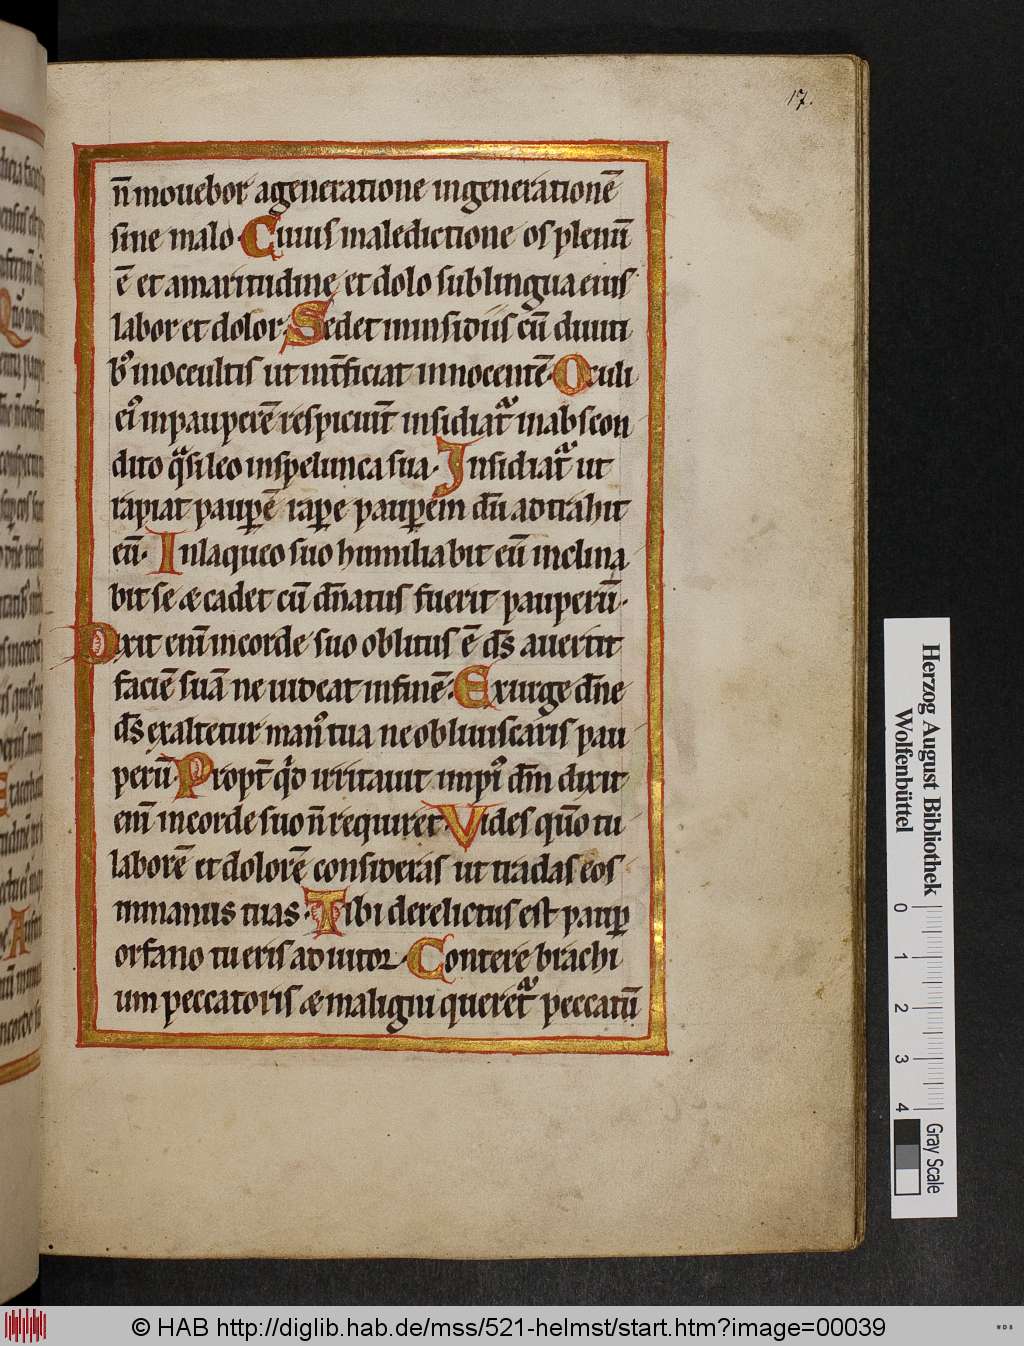 17.
n̄ mouebor a generatione in generationē
sine malo. Cuius maledictione os plenū
ē et amaritudine et dolo sub lingua eius
labor et dolor. Sedet in insidiis cū diuiti
bꝰ in occultis ut int̄ficiat innocentē. Oculi
eiꝰ in pauperē respiciūt insidiat᷑ in abscon
dito q̄si leo in spelunca sua. Insidiat᷑ ut
rapiat paup̄ē rap̄e paup̄em dū adtrahit
eū. In laqueo suo humiliabit eū inclina
bit se & cadet cū dn̄atus fuerit pauperū.
Dixit enī in corde suo oblitus ē d̄s auertit
faciē suā ne uideat in finē. Exurge dn̄e
d̄s exaltetur manꝰ tua ne obliuiscaris pau
perū. Propt̄ qd̄ irritauit impiꝰ dm̄ dixit
enī in corde suo n̄ requiret. Vides qm̄o tu
laborē et dolorē consideras ut tradas eos
in manus tuas. Tibi derelictus est paup̄
orfano tu eris adiutor. Contere brachi
um peccatoris & maligni queret᷑ peccatū
Herzog August Bibliothek
Wolfenbüttel
0 1 2 3 4
Gray Scale
© HAB http://diglib.hab.de/mss/521-helmst/start.htm?image=00039